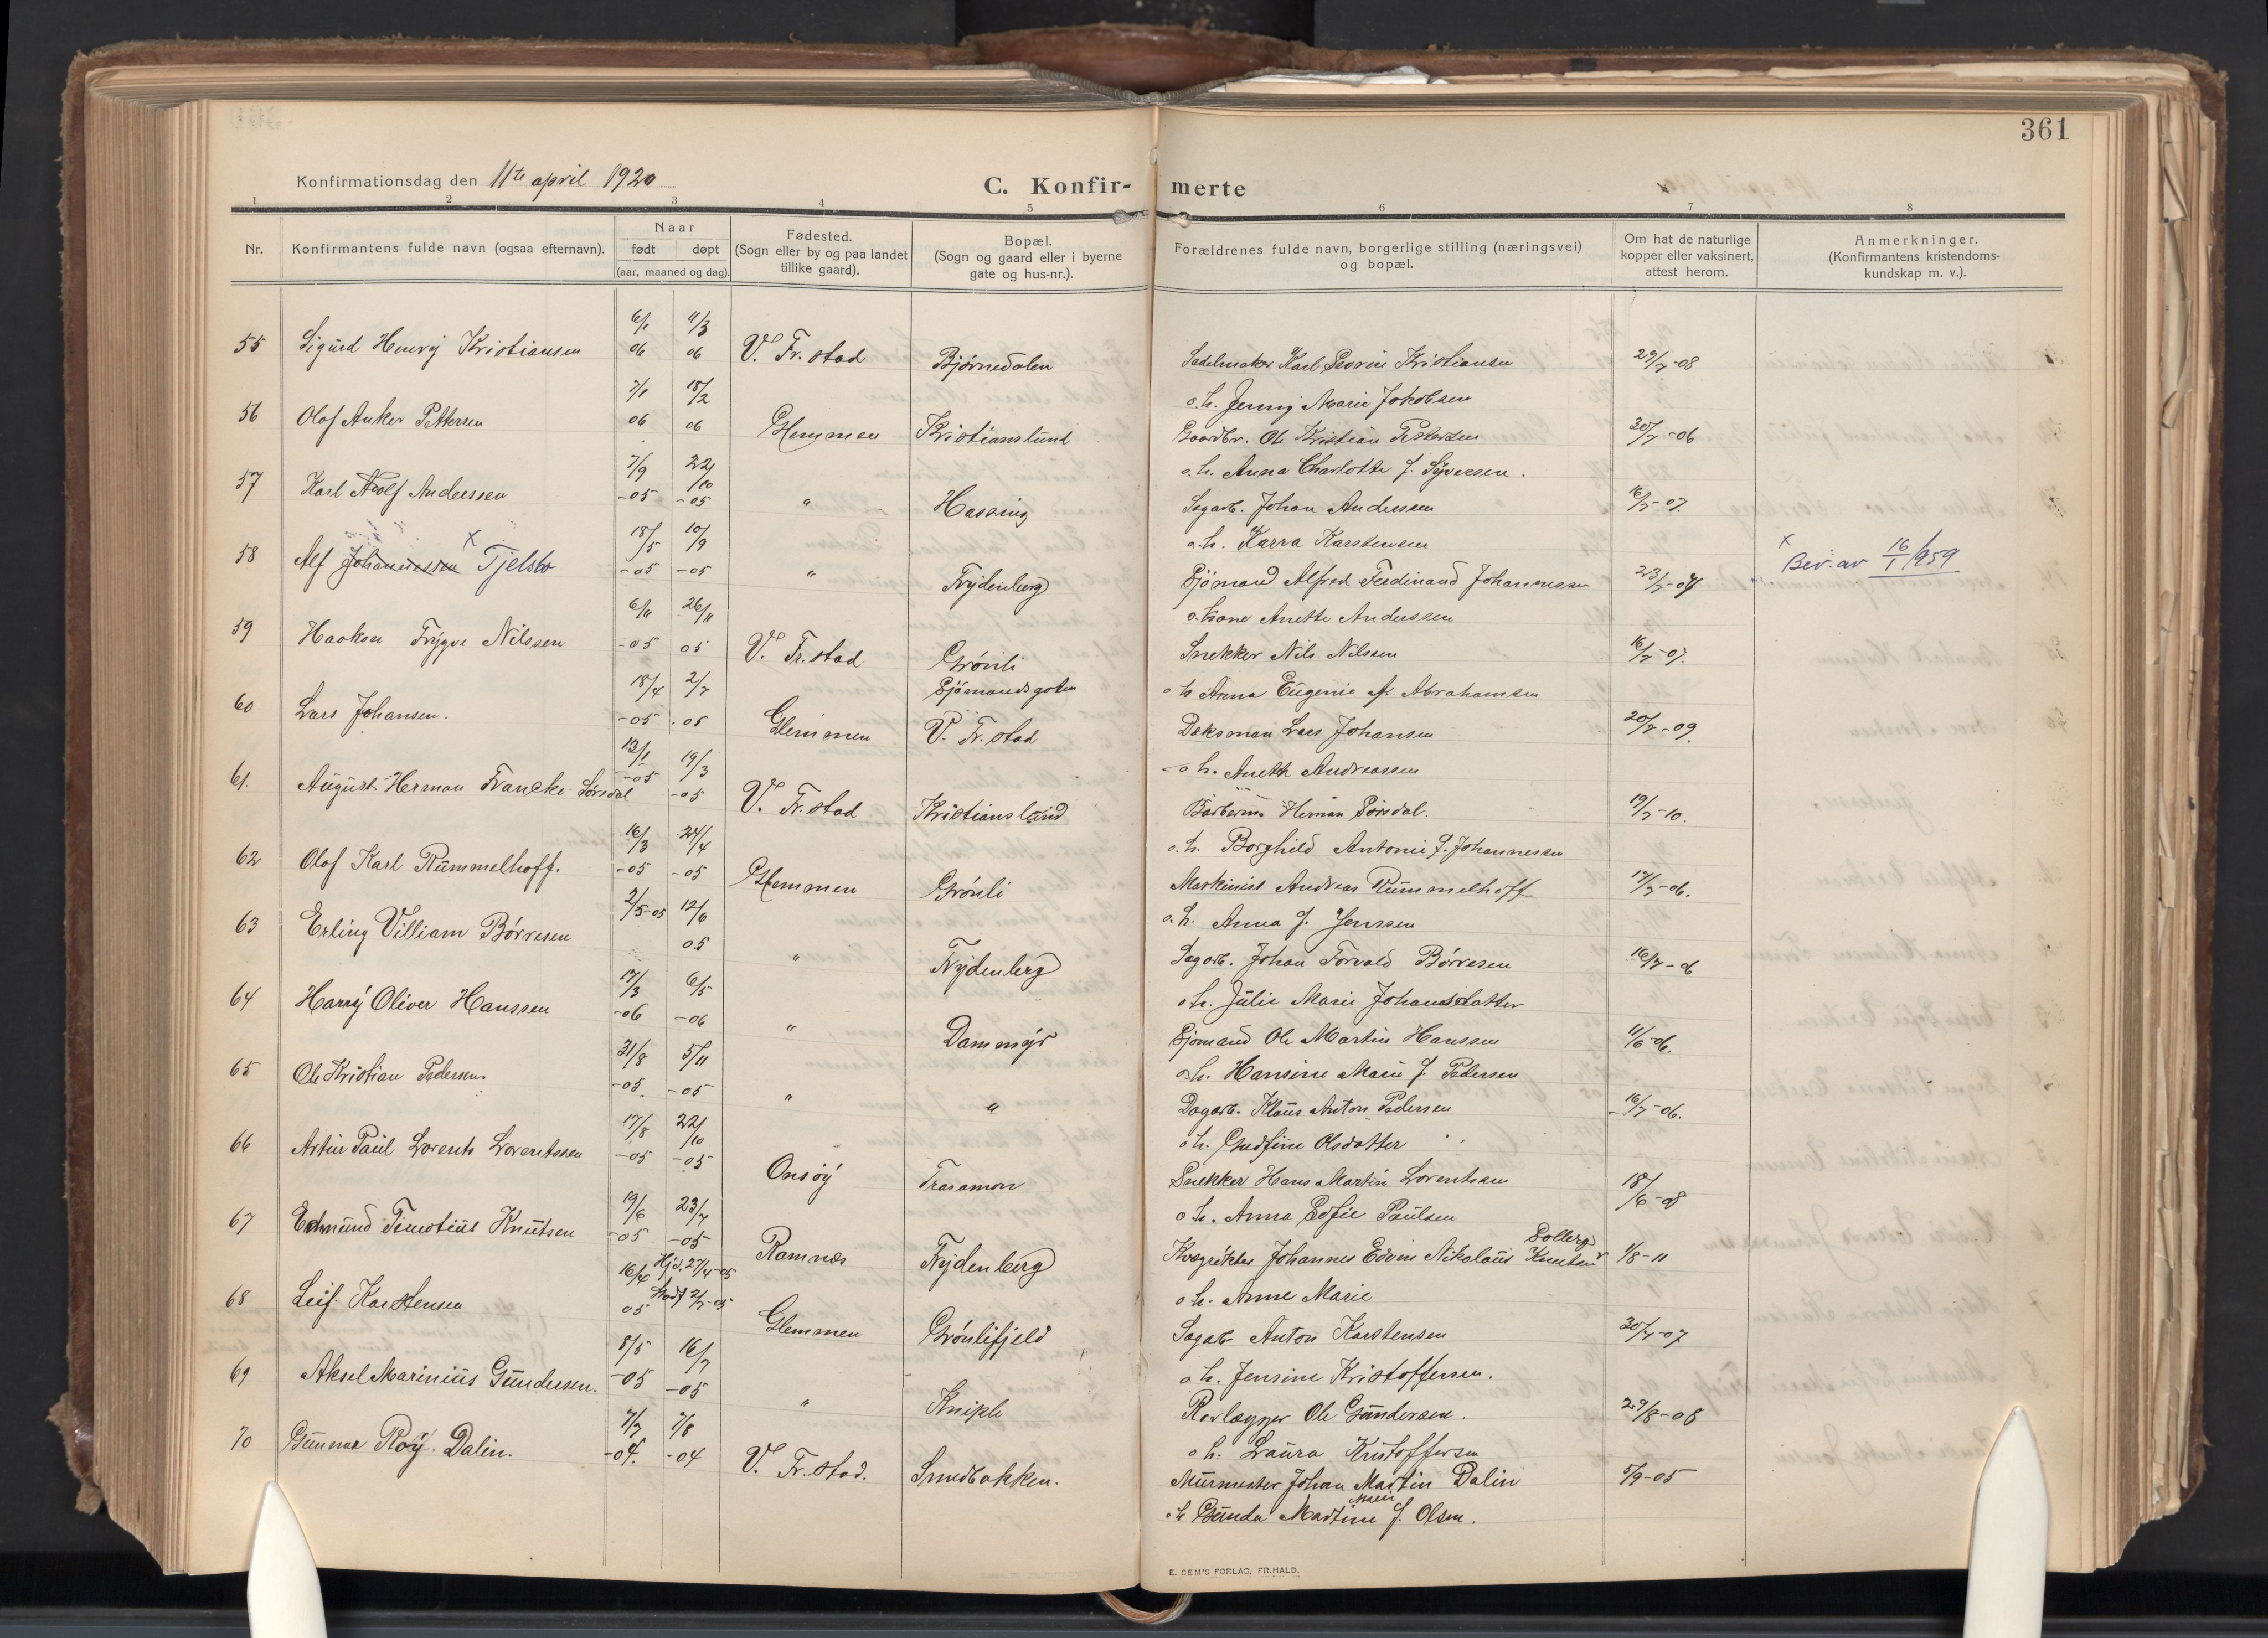 361
Konfirmationsdag den 11te april 1920
C. Konfir- merte
1 2 3 4 5 6 7 8
Nr.
Konfirmantens fulde navn (ogsaa efternavn).
Naar
født døpt
(aar, maaned og dag).
Fødested.
(Sogn eller by og paa landet
tillike gaard).
Bopæl.
(Sogn og gaard eller i byerne
gate og hus-nr.).
Forældrenes fulde navn, borgerlige stilling (næringsvei)
og bopæl.
Om hat de naturlige
kopper eller vaksinert,
attest herom.
Anmerkninger.
(Konfirmantens kristendoms-
kundskap m. v.).
55 Sigurd Henry Kristiansen 6/1 06 11/3 06 V. Fr.stad Bjørnedalen Sadelmaker Karl Severin Kristiansen 29/7-08
o. h. Jenny Marie Jakobsen
56 Olaf Anker Pettersen 7/1 06 18/2 06 Glemmen Kristianslund Gaardbr. Ole Kristian Pettersen 30/7-06
o. h. Anna Charlotte f. Syversen.
57 Karl Adolf Anderssen 7/9 -05 22/10 -05 " Hassing Sagarb. Johan Anderssen 16/7-07.
o. h. Karra Karstensen
58 Alf Johannessen x Tjelsbo 18/5 -05 10/9 -05 " Frydenberg Sjømand Alfred Ferdinand Johannessen 23/7-07 x Bev. av 16/1 1959
o. kone Anette Anderssen
59 Haakon Trygve Nilssen 6/11 -05 26/11 05 V. Fr.stad Grønli Snekker Nils Nilssen 16/7-07.
o h Anna Eugenie f. Abrahamsen
60 Lars Johansen. 18/4 -05 2/7 -05 Glemmen Sjømandsgaten V. Fr.stad Daksman Lars Johansen 20/7-09.
o h. Aneth Andreassen
61. August Herman Francke Sørsdal 13/1 -05 19/3 -05 V. Fr.stad Kristianslund Barberm. Herman Sørsdal. 19/7-10.
o. h. Borghild Antonie f. Johannessen
62 Olaf Karl Rummelhoff. 16/3 -05 24/4 -05 Glemmen Grønli Maskinist Andreas Rummelhoff 17/7-06.
o. h. Anna f. Jenssen
63 Erling Villiam Børresen 2/5-05 12/6 05 " Frydenberg Dagarb. Johan Torvald Børresen 16/7-06
o h. Julie Marie Johansdatter
64 Harry Oliver Hanssen 17/3 -06 6/5 -06 " Dammyr Sjømand Ole Martin Hanssen 11/6-06.
o h. Hansine Marie f. Pedersen
65 Ole Kristian Pedersen. 31/8 -05. 5/11 -05 " " Dagarb. Klaus Anton Pedersen 16/7-06.
o h. Gudfine Olsdatter
66 Artur Paul Lorents Lorentssen 17/8 -05 22/10 -05 Onsøy Trosamon Snekker Hans Martin Lorentssen 18/6-08
o h. Anna Sofie Paulsen
67 Edmund Timotius Knutsen 19/6 -05 23/7 -05 Ramnes Frydenberg Kvægrøkter Johannes Edvin Nikolaus Knutsen Solberg 1/8-11
o h. Anne Marie
68 Leif Karstensen 16/4 05 Hjd. 27/4-05 Stadf 2/7-05 Glemmen Grønlifjeld Sagarb Anton Karstensen 30/7-07
o h. Jensine Kristoffersen.
69 Aksel Marinius Gundersen. 8/5 -05 16/7 -05 " Kniple Rørlægger Ole Gundersen. 29/8-08
o h. Laura Kristoffersen
70 Gunnar Roy Dalin. 7/7 -04. 7/8 -04 V. Fr.stad. Smedbakken. Murmester Johan Martin Dalin 5/9-05
o h Gunda Martine Marie f. Olsen.
E. SEM'S FORLAG, FR.HALD.